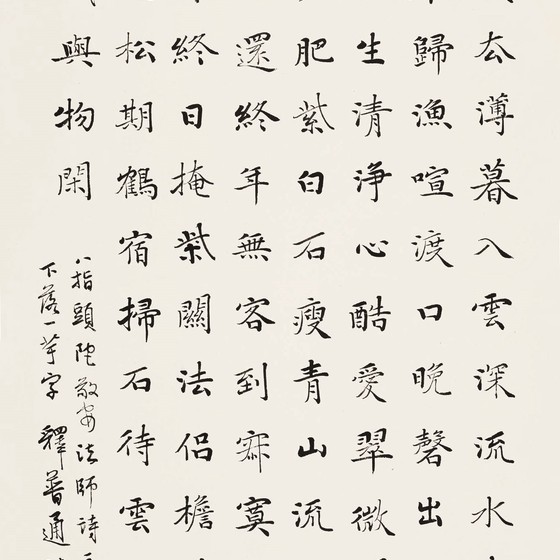 厺薄暮入雲深流水
歸漁喧渡口晚磬出
生清淨心酷愛翠微
肥紫白石瘦青山流
還終年無客到寂寞
終日掩柴關法侶檐
松期鶴宿掃石待雲
與物閑
八指頭陀敬安法師詩
下落一芋字 釋普通